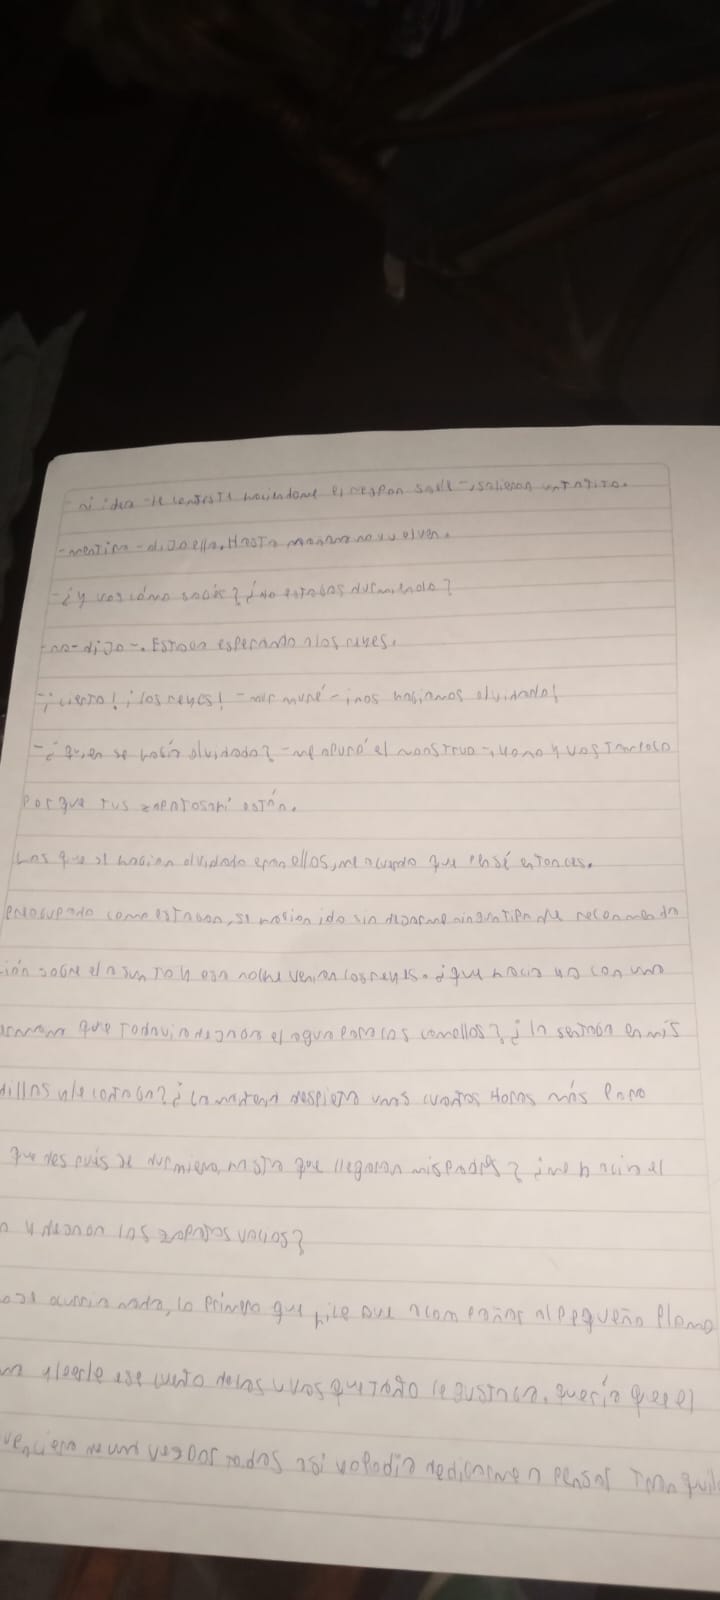 -ni idea -le contesté haciendome el respon sable-, salieron un ratito.
-mentira -dijo ella. Hasta mañana no vuelven.
-¿y vos cómo sabés? ¿No estabas durmiendo?
-no-dijo-. Estaba esperando a los reyes.
-¡cierto! ¡los reyes! -murmuré- ¡nos habíamos olvidado!
-¿quién se había olvidado? -me apuró el monstruo-, yo no y vos tampoco
Por que tus zapatos ahí están.
Los que se habían olvidado eran ellos, me acuerdo que pensé entonces.
como estaban, se habían ido sin dejarme ningún tipo de recomenda
ción sobre el asunto y esa noche venían los reyes. ¿que hacía yo con una
que todavía dejaba el agua para los camellos? ¿la sentaba en mis
dillas y le contaba? ¿La mandaba despierta unas cuantas horas más Para
que después se durmiera, hasta que llegaran mis padres? ¿me hacía el
y dejaban los zapatos vacíos?
ocurría nada, lo primero que hice fue acompañar al pequeño Plomo
y leerle ese cuento de las uvas que tanto le gustaba. quería que el
venciera de una vez por todas así yo podía dedicarme a pensar tranquilo